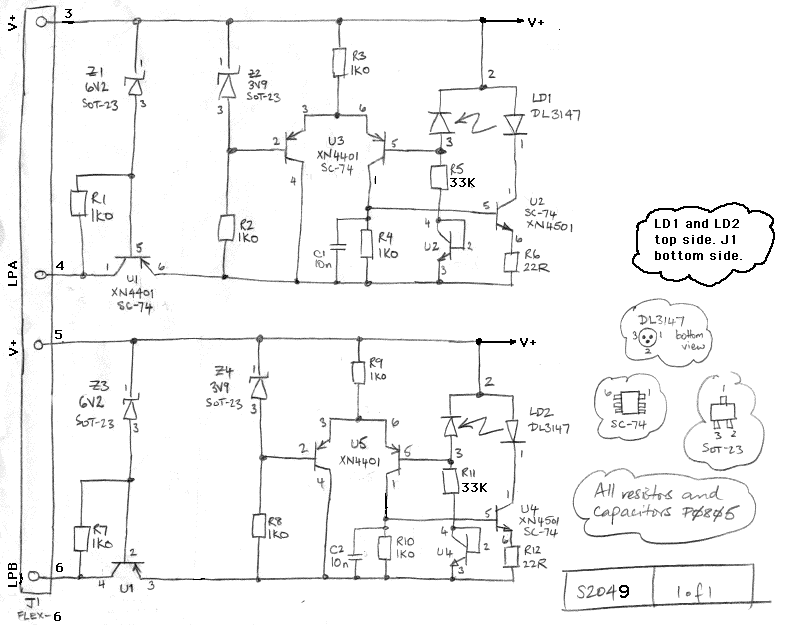 V+
3
V+
Z1
6V2
SOT-23
1
3
Z2
3V9
SOT-23
1
3
R3
1K0
2
LD1
DL3147
3
6
2
U3
XN4401
SC-74
5
4
1
3
1
R5
33K
R1
1K0
R2
1K0
C1
10n
R4
1K0
4
U2
2
3
1
5
U2
SC-74
XN4501
6
R6
22R
LPA
4
1
5
6
U1
XN4401
SC-74
LD1 and LD2
top side. J1
bottom side.
V+
5
V+
Z3
6V2
SOT-23
1
3
Z4
3V9
SOT-23
1
3
R9
1K0
2
LD2
DL3147
3
6
2
U5
XN4401
5
4
1
3
1
R11
33K
R7
1K0
R8
1K0
C2
10n
R10
1K0
4
U4
2
3
1
5
U4
XN4501
SC-74
6
R12
22R
LPB
6
4
2
3
U1
J1
FLEX-6
DL3147
3
1
2
bottom
view
6
1
SC-74
1
3 2
SOT-23
All resistors and
capacitors P0805
S2049
1 of 1